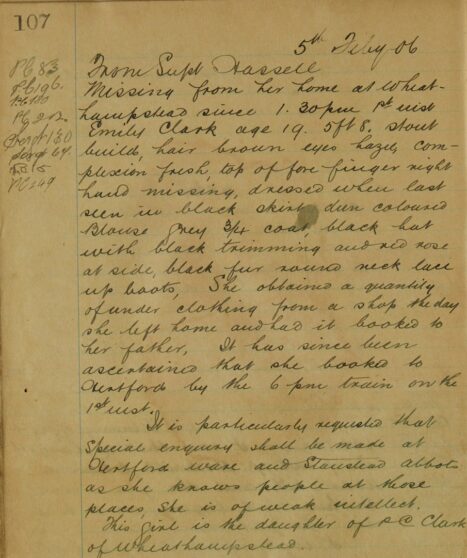 107
5th Feby 06
PC 83
PC 196
PC 212
Sergt 130
Sergt 64
PC 249
From Supt Hassell
Missing from her home at Wheat-
hampstead since 1.30pm 1st inst
Emily Clark age 19. 5ft 8, stout
build, hair brown eyes hazel, com-
plexion fresh, top of fore finger right
hand missing, dressed when last
seen in black skirt, dun coloured
Blouse grey 3/4 coat, black hat
with black trimming and red rose
at side, black fur round neck lace
up boots, She obtained a quantity
of under clothing from a shop the day
she left home and had it booked to
her father. It has since been
ascertained that she booked to
Hertford by the 6 pm train on the
1st inst.
It is particularly requested that
Special enquiry shall be made at
Hertford ware and Stanstead abbots
as she knows people at those
places, She is of weak intellect.
This girl is the daughter of P.C. Clark
of Wheathampstead.